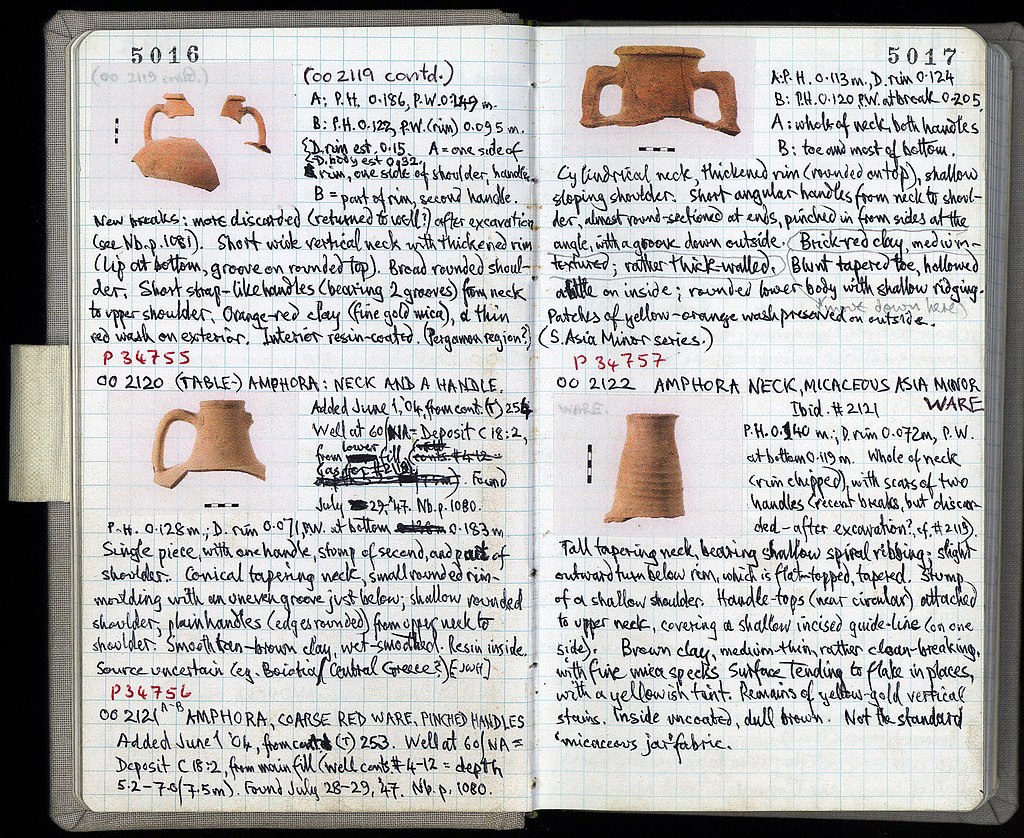 5016
(00 2119 contd.)
A: P.H. 0.186, P.W. 0.149 m.
B: P.H. 0.122, P.W. (rim) 0.095 m.
D. rim est. 0.15. A = one side of
D. body est 0.32.
rim, one side of shoulder, handle
B = part of rim, second handle.
New breaks: more discarded (returned to well?) after excavation
(see Nb. p. 1081). Short wide vertical neck with thickened rim
(lip at bottom, groove on rounded top). Broad rounded shoul-
der. Short strap-like handles (bearing 2 grooves) from neck
to upper shoulder. Orange-red clay (fine gold mica), a thin
red wash on exterior. Interior resin-coated. (Pergamon region?)
P 34755
00 2120 (TABLE-) AMPHORA: NECK AND A HANDLE.
Added June 1, '04, from cont. (T) 254
Well at 60/NA = Deposit C 18:2,
from lower fill
(as for #2119)
Found
July 29, '47. Nb. p. 1080.
P.H. 0.128 m.; D. rim 0.071, P.W. at bottom 0.183 m
Single piece, with one handle, stump of second, and part of
shoulder. Conical tapering neck, small rounded rim-
moulding with an uneven groove just below; shallow rounded
shoulder; plain handles (edges rounded) from upper neck to
shoulder. Smooth tan-brown clay, wet-smoothed. Resin inside.
Source uncertain (eg. Boiotia/Central Greece?) [JWH]
P 34756
00 2121 A-B AMPHORA, COARSE RED WARE, PINCHED HANDLES
Added June 1 '04, from cont (T) 253. Well at 60/NA =
Deposit C 18:2, from main fill (well conts # 4-12 = depth
5.2-7.0/7.5m). Found July 28-29, '47. Nb. p. 1080.
5017
A: P.H. 0.113 m., D. rim 0.124
B: P.H. 0.120 P.W. at break 0.205
A: whole of neck, both handles
B: toe and most of bottom.
Cylindrical neck, thickened rim (rounded on top), shallow
sloping shoulder. Short angular handles from neck to shoul-
der, almost round-sectioned at ends, pinched in from sides at the
angle, with a groove down outside. Brick-red clay, medium-
textured; rather thick-walled. Blunt tapered toe, hollowed
a little on inside; rounded lower body with shallow ridging.
(move down here)
Patches of yellow-orange wash preserved on outside.
(S. Asia Minor series.)
P 34757
00 2122 AMPHORA NECK, MICACEOUS ASIA MINOR
WARE
Ibid. # 2121
P.H. 0.140 m.; D. rim 0.072m, P.W.
at bottom 0.119 m. Whole of neck
(rim chipped), with scars of two
handles (recent breaks, but discar-
ded - after excavation?, cf. # 2119).
Tall tapering neck, bearing shallow spiral ribbing; slight
outward turn below rim, which is flat-topped, tapered. Stump
of a shallow shoulder. Handle-tops (near circular) attached
to upper neck, covering a shallow incised guide-line (on one
side). Brown clay, medium-thin, rather clean-breaking,
with fine mica specks. Surface tending to flake in places,
with a yellowish tint. Remains of yellow-gold vertical
stains. Inside uncoated, dull brown. Not the standard
'micaceous jar' fabric.